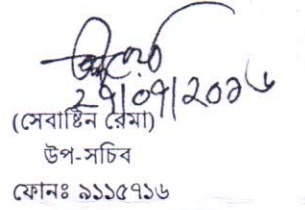 ২৭/০৭/২০১৬
(সেবাষ্টিন রেমা)
উপ-সচিব
ফোনঃ ৯১১৫৭১৬